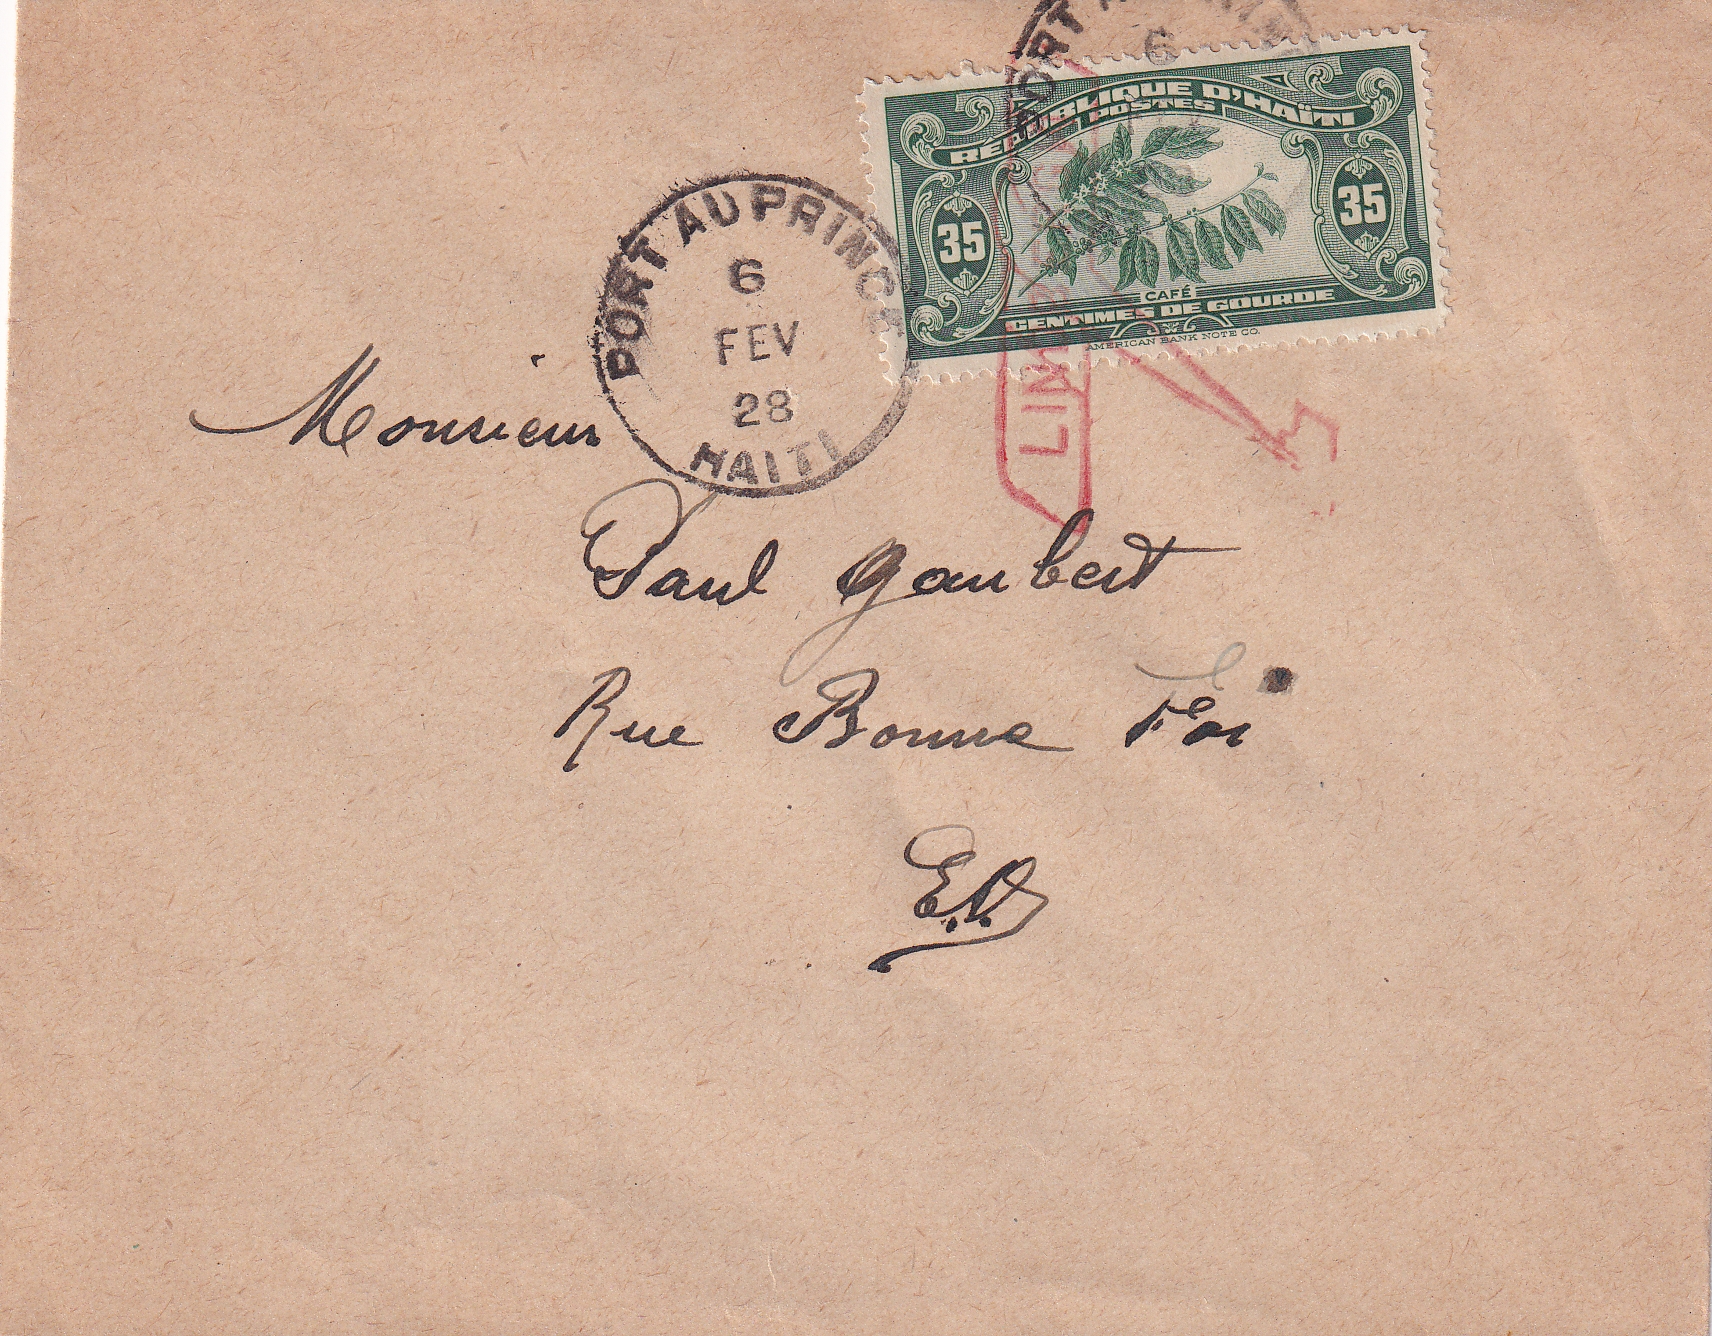 PORT AU PRINCE
6
RÉPUBLIQUE D'HAÏTI
POSTES
35
35
CAFÉ
CENTIMES DE GOURDE
AMERICAN BANK NOTE CO.
PORT AU PRINCE
6
FEV
28
HAITI
Monsieur
Paul Gaubert
Rue Bonne Foi
E.V.